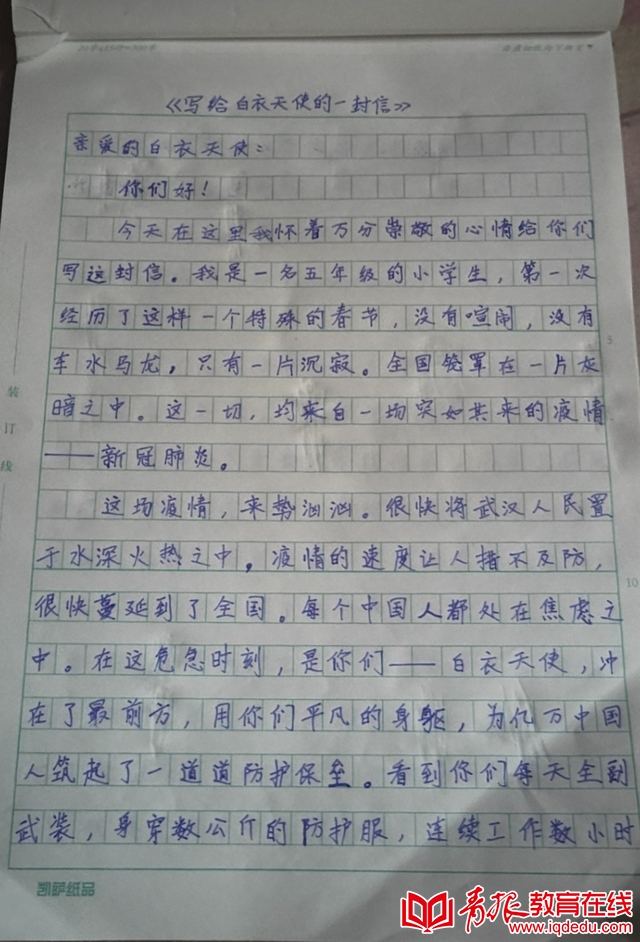 《写给白衣天使的一封信》
亲爱的白衣天使：
你们好！
今天在这里我怀着万分崇敬的心情给你们
写这封信。我是一名五年级的小学生，第一次
经历了这样一个特殊的春节，没有喧闹，没有
车水马龙，只有一片沉寂。全国笼罩在一片灰
暗之中。这一切，均来自一场突如其来的疫情
——新冠肺炎。
这场疫情，来势汹汹。很快将武汉人民置
于水深火热之中，疫情的速度让人措不及防，
很快蔓延到了全国。每个中国人都处在焦虑之
中。在这危急时刻，是你们——白衣天使，冲
在了最前方，用你们平凡的身躯，为亿万中国
人筑起了一道道防护保垒。看到你们每天全副
武装，身穿数公斤的防护服，连续工作数小时
5
10
装
订
线
凯萨纸品
青报教育在线
www.iqdedu.com